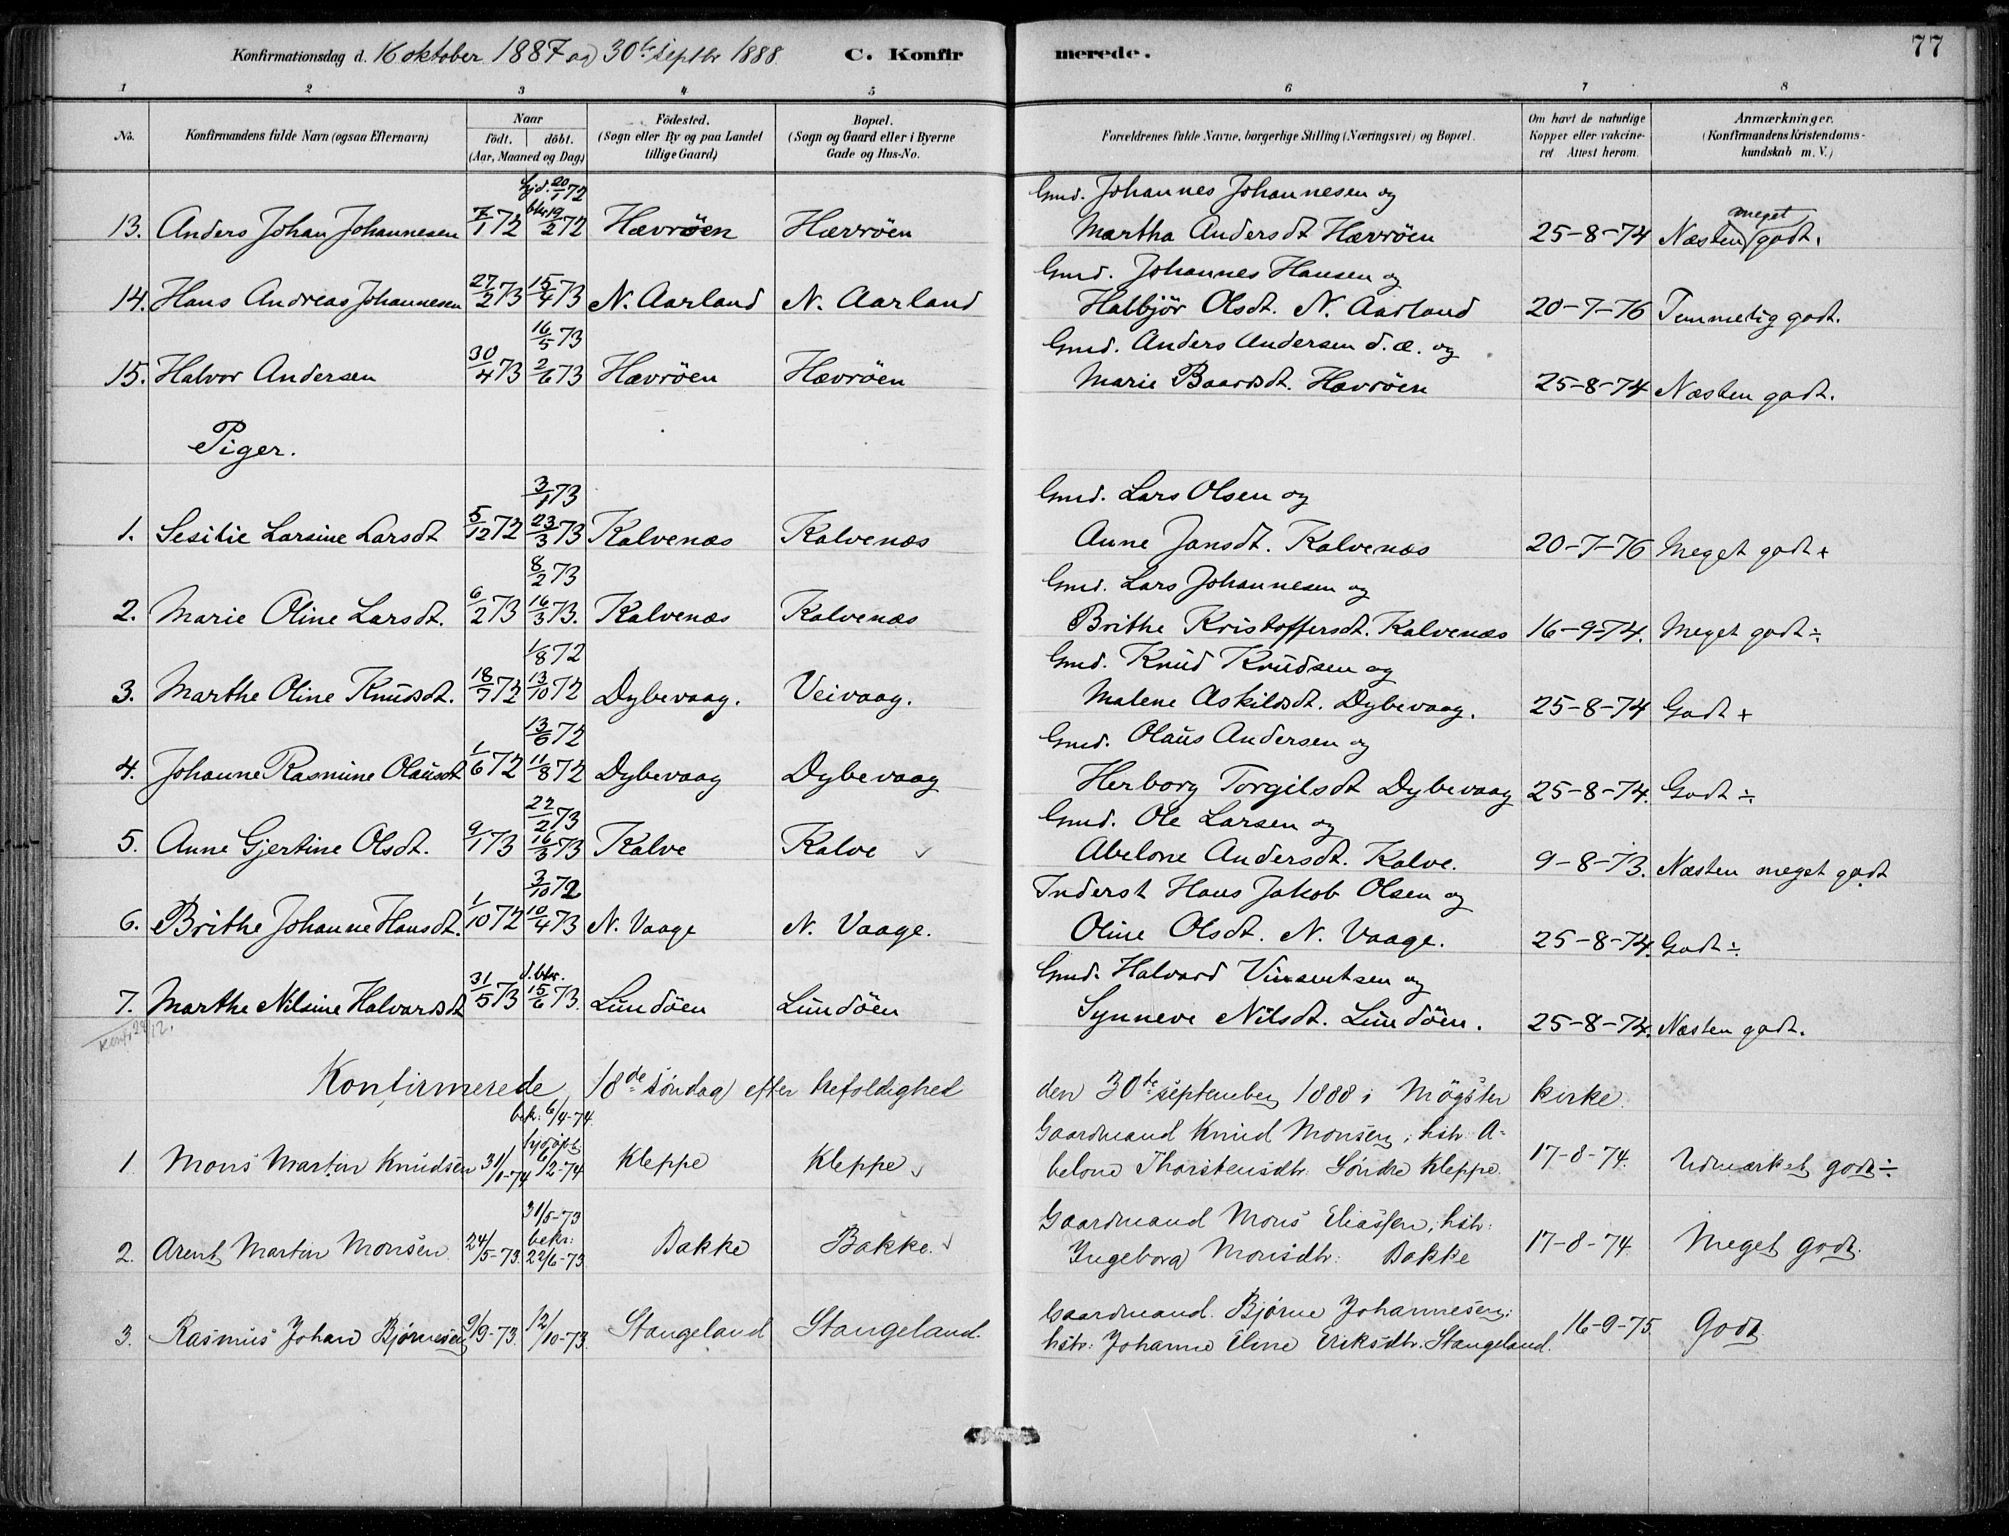 Konfirmationsdag d. 16 oktober 1887 og 30te septbr 1888. C. Konfirmerede. 77
1 2 3 4 5 6 7 8
No. Konfirmandens fulde Navn (ogsaa Efternavn) Naar födt. döbt. (Aar, Maaned og Dag) Födested. (Sogn eller By og paa Landet tillige Gaard) Bopæl. (Sogn og Gaard eller i Byerne Gade og Hus-No. Forældrenes fulde Navne, borgerlige Stilling (Næringsvei) og Bopæl. Om havt de naturlige Kopper eller vakcineret Attest herom. Anmærkninger. (Konfirmandens Kristendomskundskab m. V.)
Hjd. 20/1 72 Gmd. Johannes Johannesen og
13. Anders Johan Johannesen 7/1 72 19/2 72 Hævröen Hævröen Martha Andersdt Hævröen 25-8-74 Næsten meget godt.
Gmd. Johannes Hansen og
14. Hans Andreas Johannesen 27/2 73 15/4 73 N. Aarland N. Aarland Halbjör Olsdt. N. Aarland 20-7-76 Temmelig godt.
16/5 73 Gmd. Anders Andersen d.æ. og
15. Halvor Andersen 30/4 73 2/6 73 Hævröen Hævröen Marie Baardsdt. Hævröen 25-8-74 Næsten godt.
Piger.
3/1 73 Gmd. Lars Olsen og
1. Sesilie Larsine Larsdt 5/12 72 23/3 73 Kalvenæs Kalvenæs Anne Jansdt. Kalvenæs 20-7-76 Meget godt +
8/2 73 Gmd. Lars Johannesen og
2. Marie Oline Larsdt. 6/2 73 16/3 73. Kalvenæs Kalvenæs Brithe Kristoffersdt. Kalvenæs 16-9-74. Meget godt ÷
1/8 72 Gmd. Knud Knudsen og
3. Marthe Oline Knudsdt. 18/7 72 13/10 72 Dybevaag. Veivaag. Malene Askildsdt. Dybevaag. 25-8-74 Godt +
13/6 72 Gmd. Olaus Andersen og
4. Johanne Rasmine Olausdt 1/6 72 11/8 72 Dybevaag Dybevaag Herborg Torgilsdt Dybevaag 25-8-74. Godt ÷
22/2 73 Gmd. Ole Larsen og
5. Anne Gjertine Olsdt. 9/1 73 16/3 73 Kalve Kalve Abelone Andersdt. Kalve. 9-8-73. Næsten meget godt
3/10 72 Inderst Hans Jakob Olsen og
6. Brithe Johanne Hansdt. 1/10 72 10/4 73 N. Vaage N. Vaage. Oline Olsdt. N. Vaage. 25-8-74. Godt ÷
Gmd. Halvard Vinsentsen og
7. Marthe Nilsine Halvardsdt 31/5 73 15/6 73. Lundöen Lundöen Synneve Nilsdt. Lundöen. 25-8-74. Næsten godt.
Konfirmerede 18de söndag efter trefoldighed den 30te september 1888 i Mögster kirke.
bekr. 6/4-74. Gaardmand Knud Monsen, hstr. A-
1. Mons Martin Knudsen 31/1-74 6/2-74 Kleppe Kleppe belone Thorstensdtr. Söndre Kleppe. 17-8-74. Udmærket godt ÷
31/5-73 Gaardmand Mons Eliassen, hstr:
2. Arent Martin Monsen 24/5-73. bekr: 22/6-73. Bakke Bakke. Ingeborg Monsdtr: Bakke 17-8-74. Meget godt.
Gaardmand. Bjørne Johannesen;
3. Rasmus Johan Bjørnesen 9/9-73. 12/10-73. Stangeland Stangeland. hstr: Johanne Eline Eriksdtr. Stangeland. 16-9-75. Godt